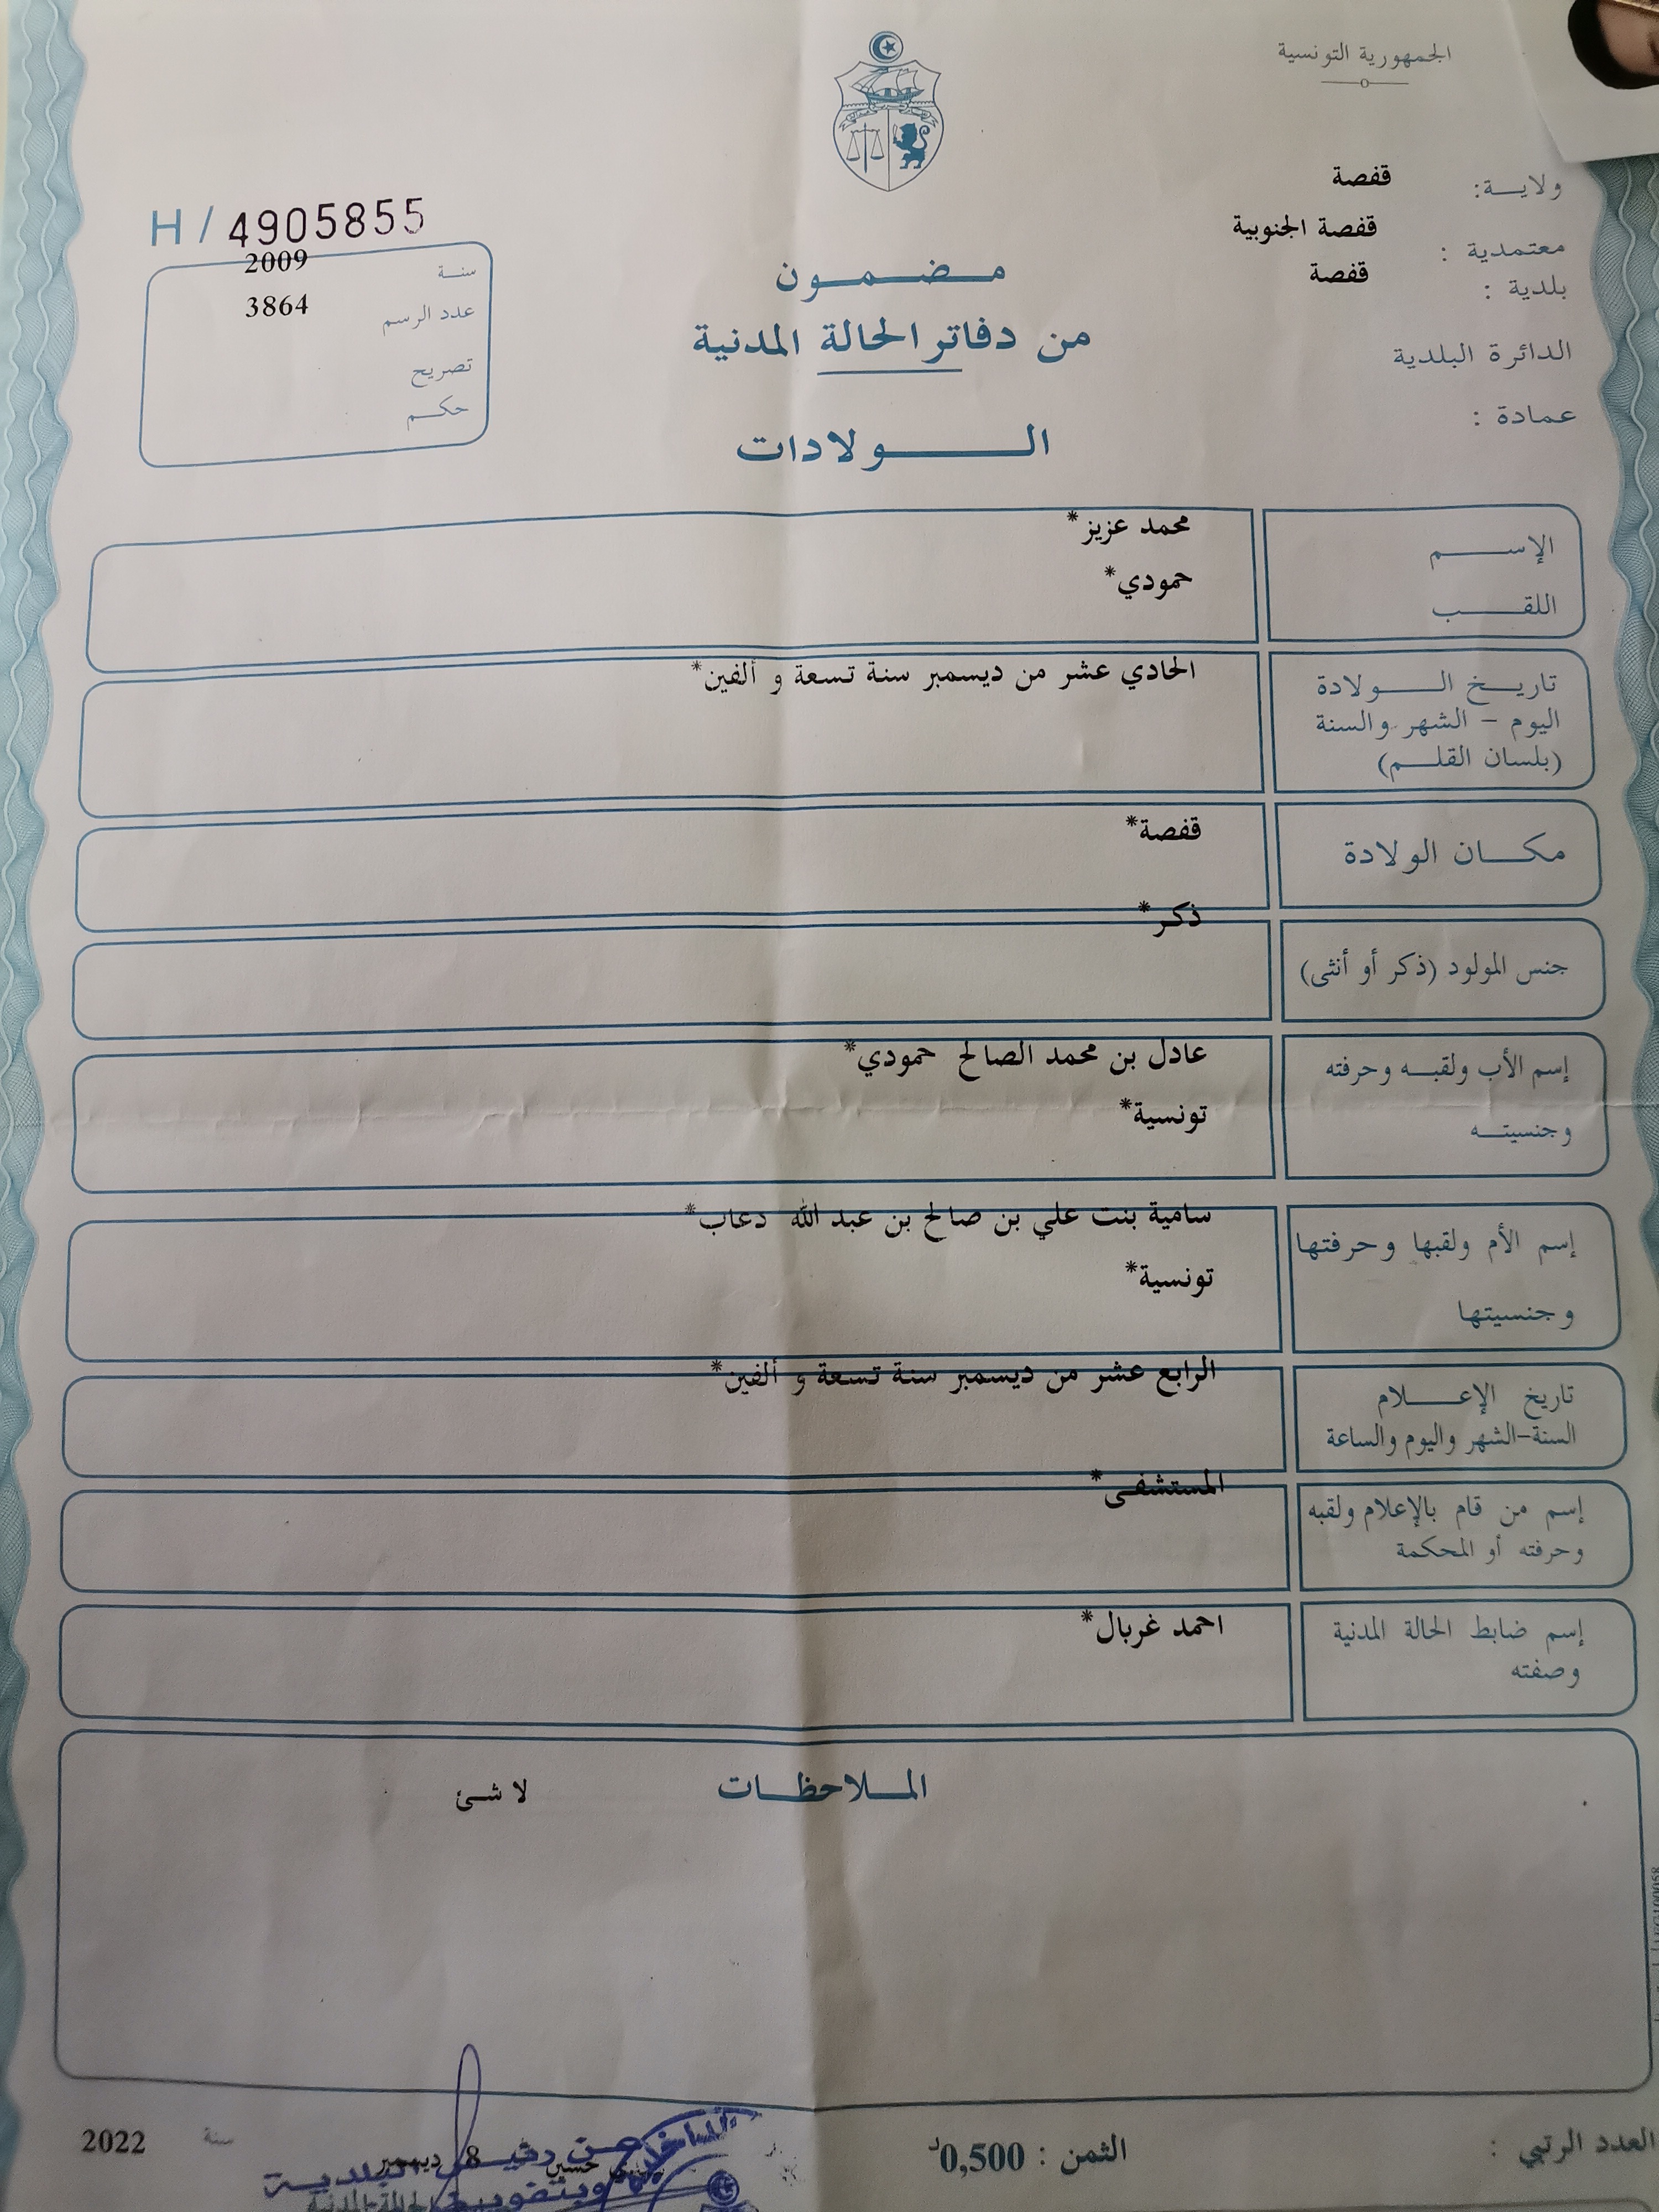 الجمهورية التونسية
ولايــة: قفصة
معتمدية : قفصة الجنوبية
بلدية : قفصة
الدائرة البلدية
عمادة :
H / 4905855
سنة 2009
عدد الرسم 3864
تصريح
حكم
مضمون
من دفاتر الحالة المدنية
الولادات
الإسم محمد عزيز*
اللقب حمودي*
تاريخ الولادة الحادي عشر من ديسمبر سنة تسعة و ألفين*
اليوم - الشهر والسنة
(بلسان القلم)
مكان الولادة قفصة*
جنس المولود (ذكر أو أنثى) ذكر*
إسم الأب ولقبه وحرفته عادل بن محمد الصالح حمودي*
وجنسيته تونسية*
إسم الأم ولقبها وحرفتها سامية بنت علي بن صالح بن عبد الله دعاب*
وجنسيتها تونسية*
تاريخ الإعلام الرابع عشر من ديسمبر سنة تسعة و ألفين*
السنة-الشهر واليوم والساعة
إسم من قام بالإعلام ولقبه المستشفى*
وحرفته أو المحكمة
إسم ضابط الحالة المدنية احمد غربال*
وصفته
الملاحظات لا شئ
العدد الرتبي :
الثمن : 0,500د
8 ديسمبر
سنة 2022